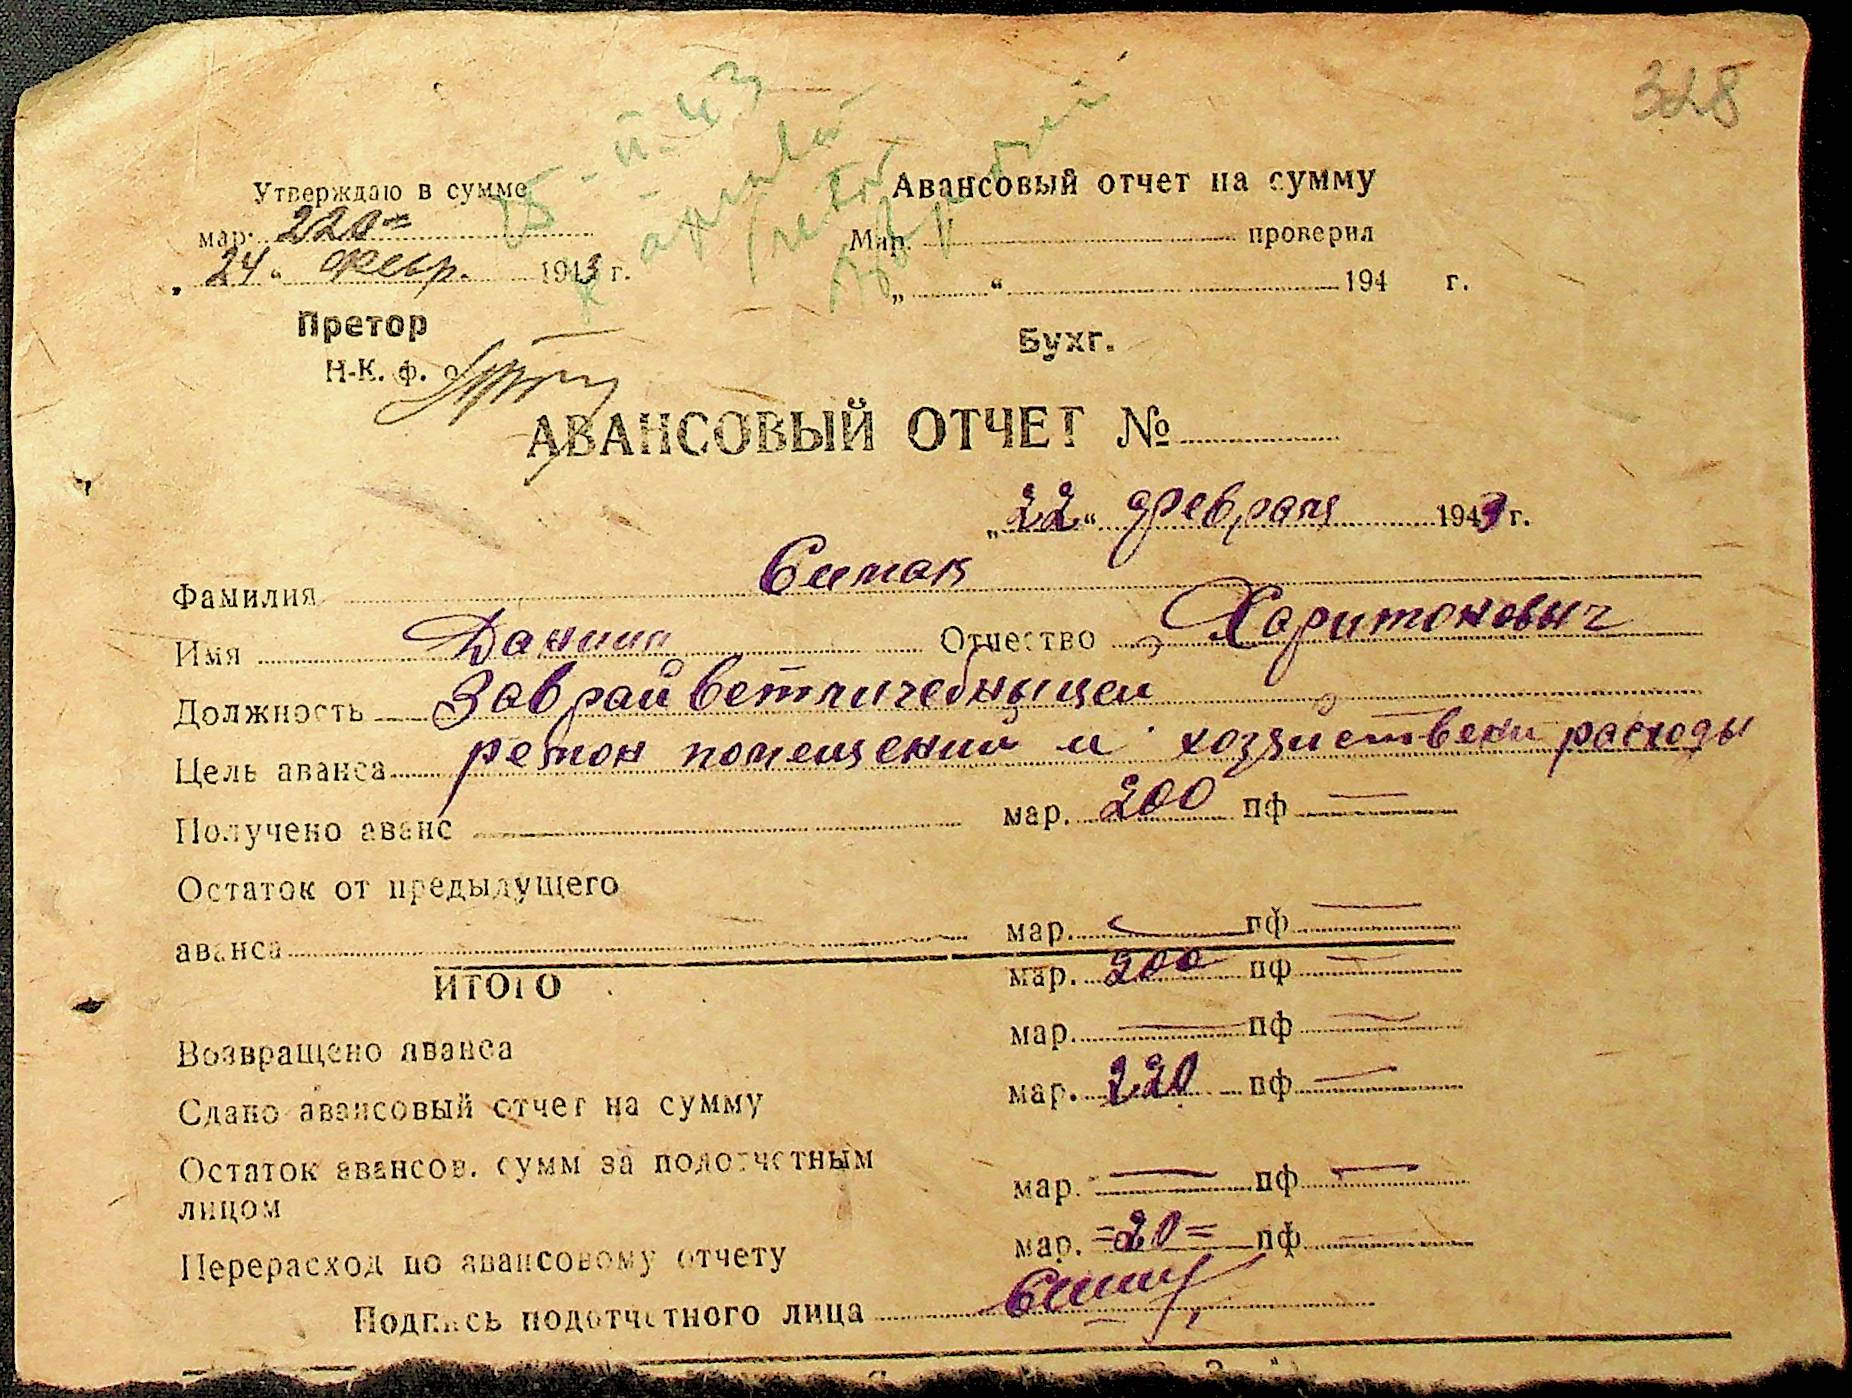 328
25-II-43
Утверждаю в сумме
мар. 220=
„24“ Февр. 1943 г.
Претор
Н-К. ф. о.
Авансовый отчет на сумму
Мар. проверил
„ “ 194 г.
Бухг.
АВАНСОВЫЙ ОТЧЕТ №
„22“ февраля 1943 г.
Фамилия Симак
Имя Даниил Отчество Харитоновыч
Должность Заврайветличебныцей
Цель аванса ремон помещений и хозяйствени расходы
Получено аванс мар. 200 пф —
Остаток от предыдущего
аванса мар. — пф —
ИТОГО мар. 200 пф —
Возвращено аванса мар. — пф —
Сдано авансовый отчет на сумму мар. 220 пф —
Остаток авансов. сумм за подотчетным
лицом мар. — пф —
Перерасход по авансовому отчету мар. =20= пф —
Подпись подотчетного лица